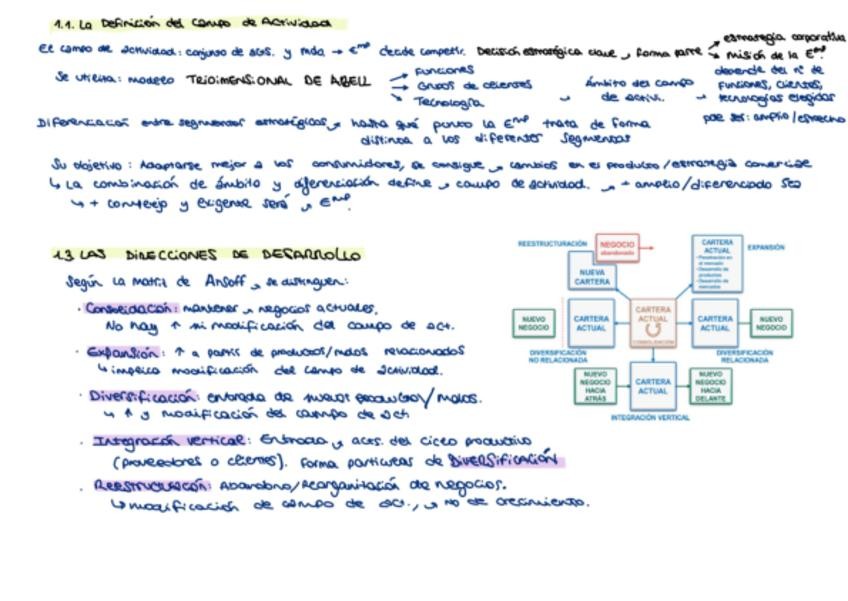 1.1. La Definición del Campo de Actividad
estrategia corporativa
El campo de actividad: conjunto de ... y mdo → Eᵐᵖ decide competir. Decisión estratégica clave, forma parte → misión de la Eᵐᵖ.
Se utiliza: modelo TRIDIMENSIONAL DE ABELL
→ Funciones
→ Grupos de clientes
→ Tecnología
Ámbito del campo
de activ.
depende del nº de
funciones, clientes,
tecnologías elegidas
pde ser: amplio/estrecho
Diferenciación entre segmentos estratégicos → hasta qué punto la Eᵐᵖ trata de forma
distinta a los diferentes segmentos
Su objetivo: Adaptarse mejor a los consumidores, se consigue → cambios en el producto/estrategia comercial
↳ La combinación de ámbito y diferenciación define → campo de actividad. → + amplio/diferenciado sea
↳ + complejo y exigente será → Eᵐᵖ.
1.3 LAS DIRECCIONES DE DESARROLLO
Según la matriz de Ansoff, se distinguen:
· Consolidación: mantener → negocios actuales.
No hay ↑ ni modificación del campo de act.
· Expansión: ↑ a partir de productos/mdos relacionados
↳ implica modificación del campo de actividad.
· Diversificación: entrada de nuevos productos/mdos.
↳ ↑ y modificación del campo de act
· Integración vertical: Entrada → acts. del ciclo productivo
(proveedores o clientes). Forma particular de DIVERSIFICACIÓN
· Reestructuración: Abandono/Reorganización de negocios.
↳ modificación de campo de act., → no de crecimiento.
REESTRUCTURACIÓN
NEGOCIO
abandonado
NUEVA
CARTERA
CARTERA
ACTUAL
• Penetración en
el mercado
• Desarrollo de
productos
• Desarrollo de
mercados
EXPANSIÓN
NUEVO
NEGOCIO
CARTERA
ACTUAL
CARTERA
ACTUAL
CONSOLIDACIÓN
CARTERA
ACTUAL
NUEVO
NEGOCIO
DIVERSIFICACIÓN
NO RELACIONADA
DIVERSIFICACIÓN
RELACIONADA
NUEVO
NEGOCIO
HACIA
ATRÁS
CARTERA
ACTUAL
NUEVO
NEGOCIO
HACIA
DELANTE
INTEGRACIÓN VERTICAL